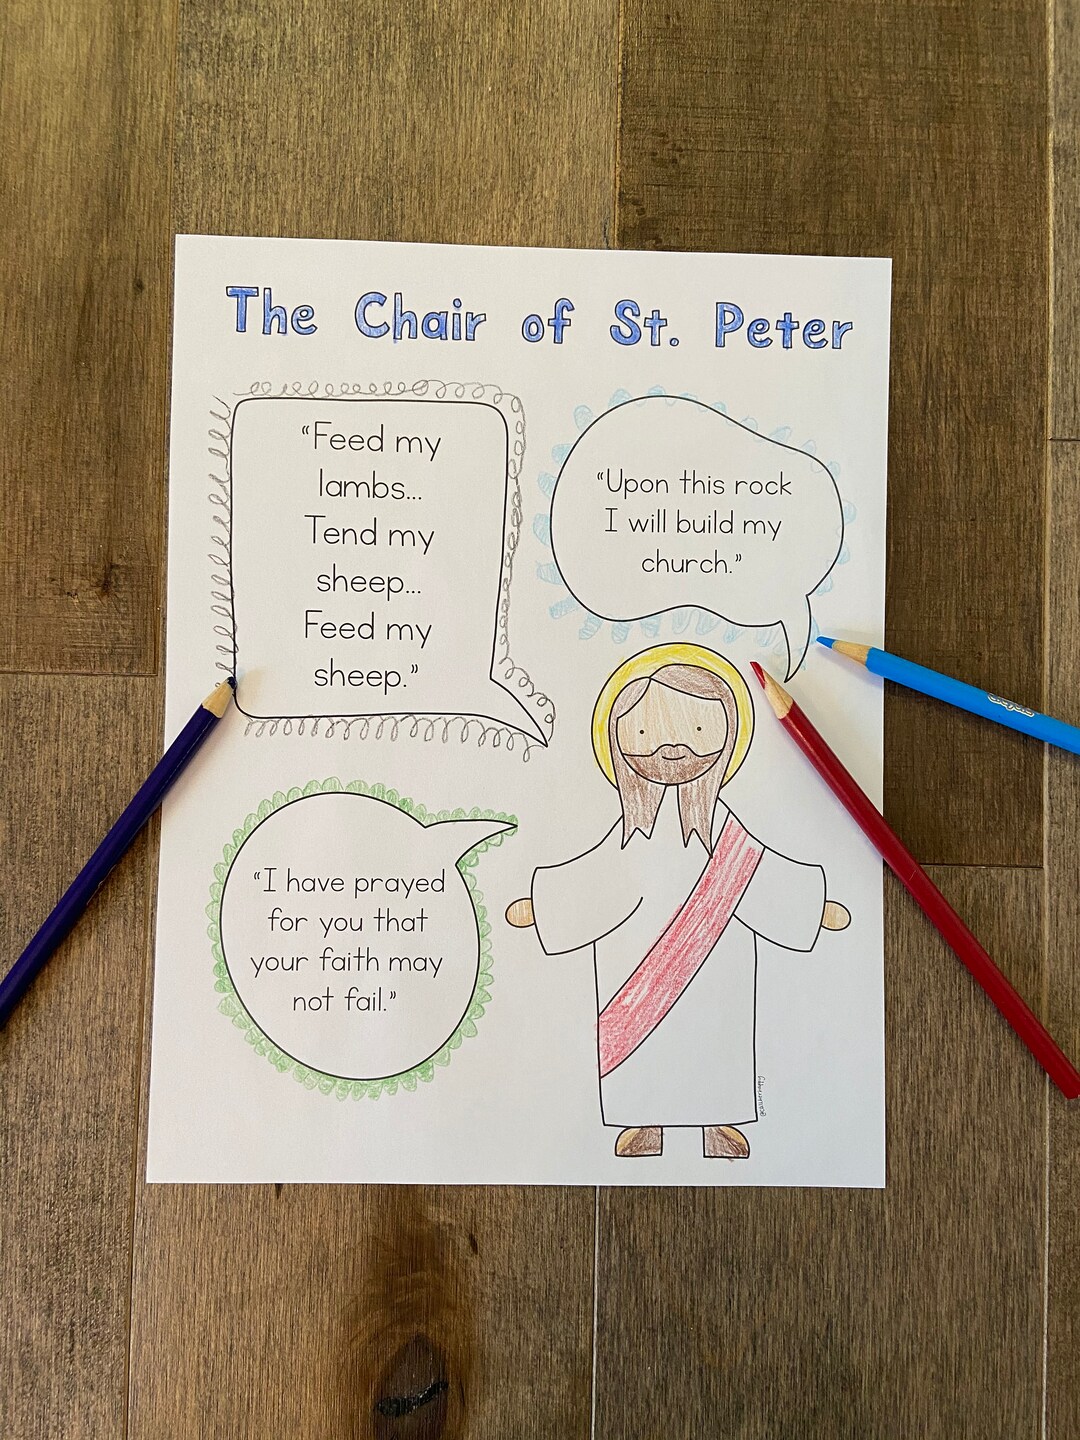 The Chair of St. Peter
“Feed my
lambs...
Tend my
sheep...
Feed my
sheep.”
“Upon this rock
I will build my
church.”
“I have prayed
for you that
your faith may
not fail.”